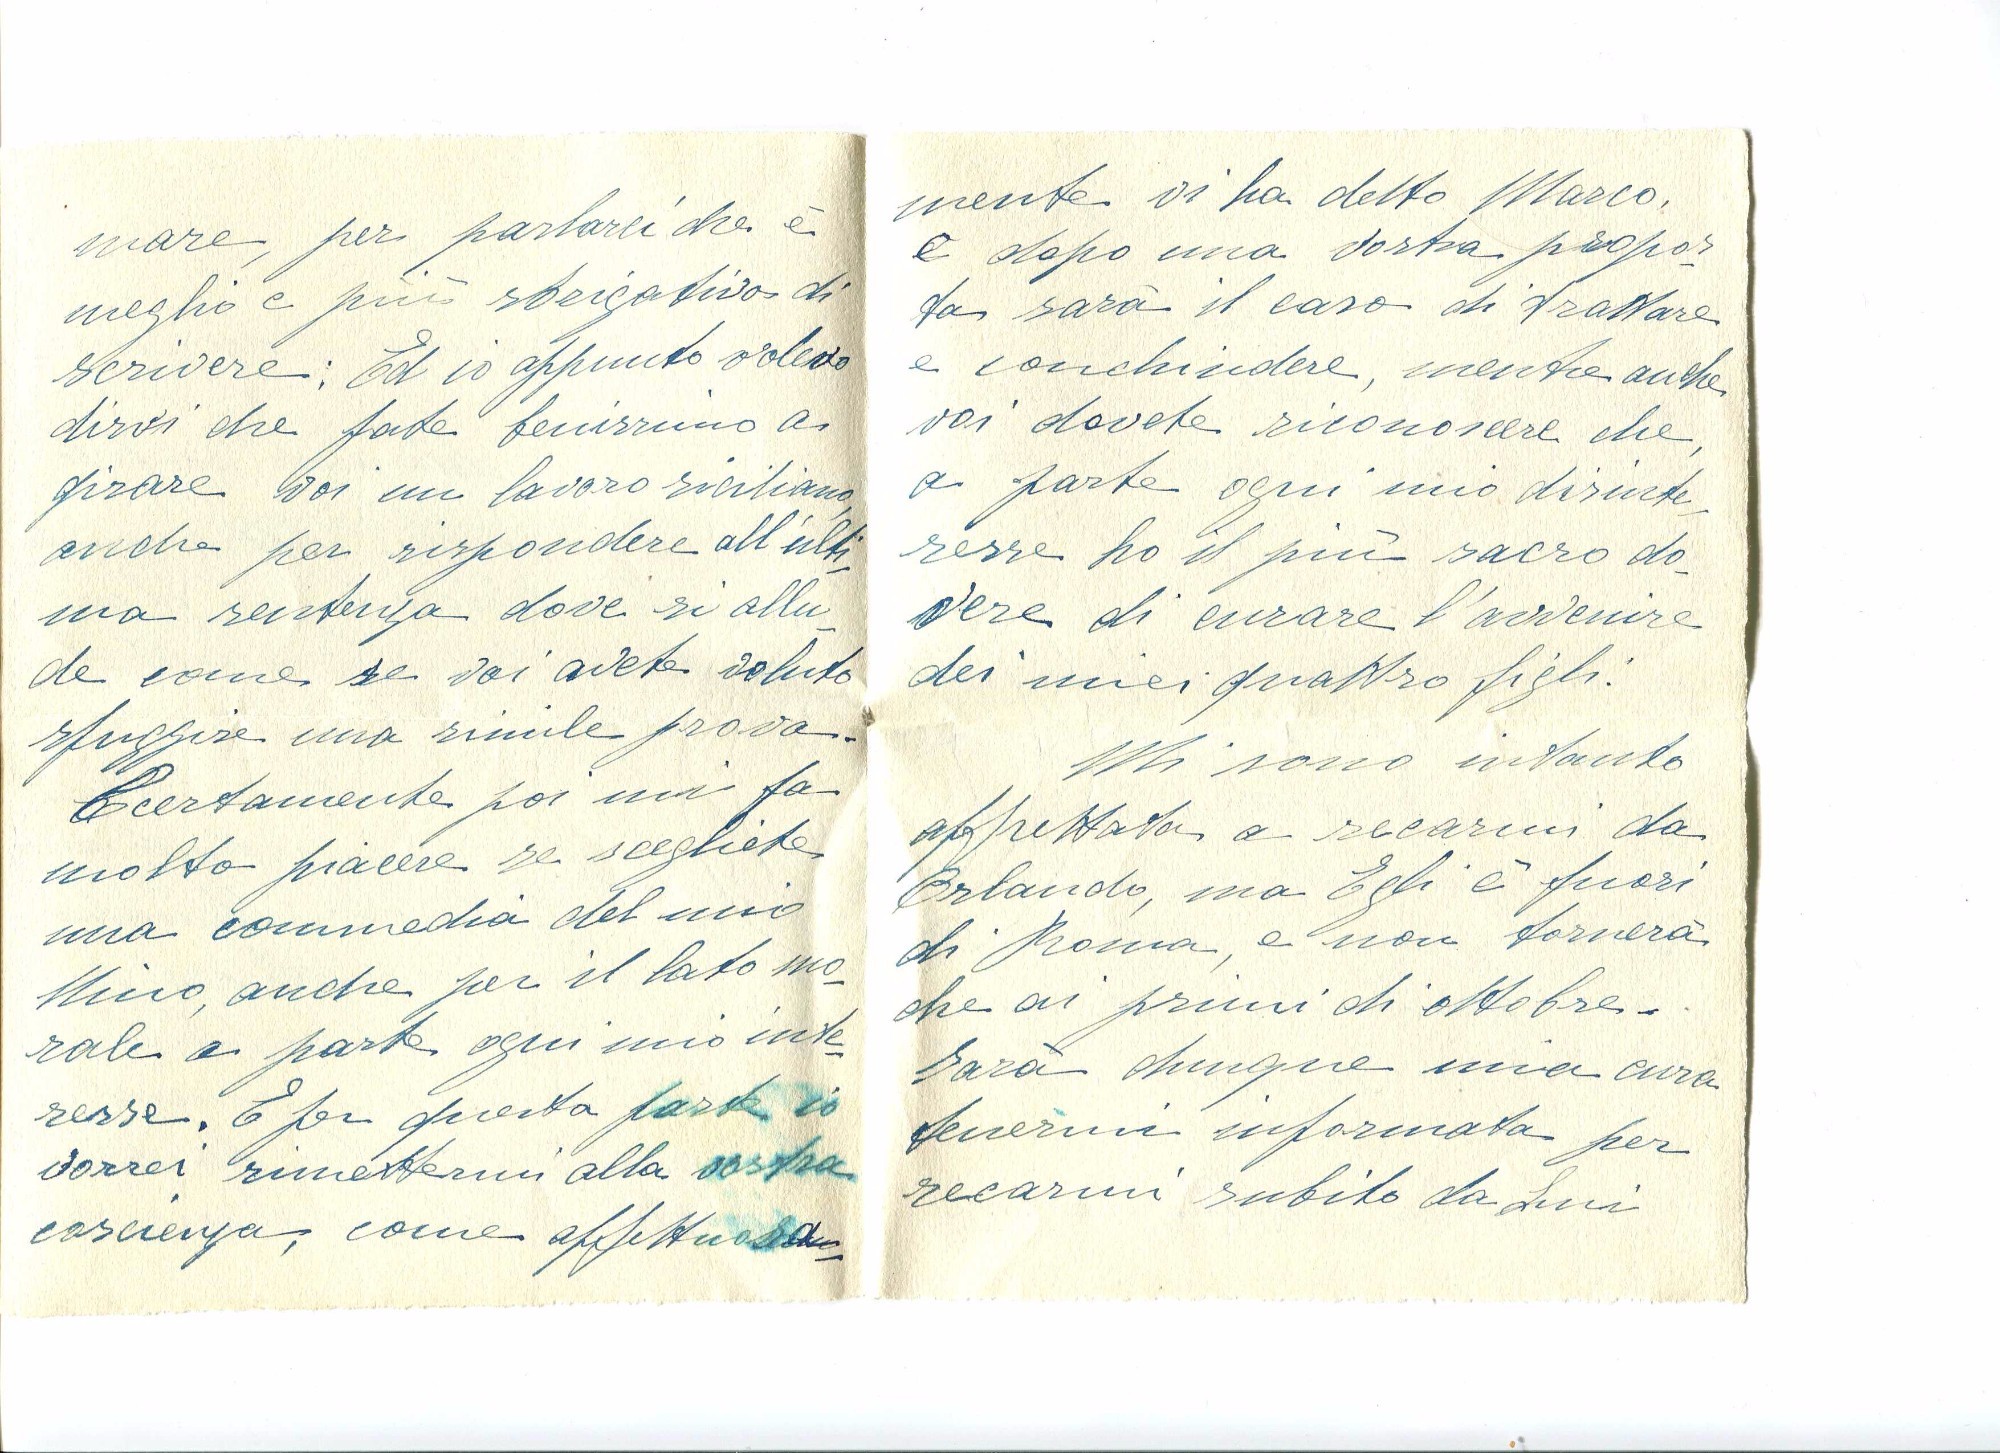 mare, per parlarci che è
meglio e più sbrigativo di
scrivere; Ed io appunto volevo
dirvi che fate benissimo a
girare voi un lavoro siciliano,
anche per rispondere all'ulti-
ma sentenza dove si allu-
de come se voi avete voluto
sfuggire una simile prova.
E certamente poi mi fa
molto piacere se scegliete
una commedia del mio
Nino, anche per il lato mo-
rale a parte ogni mio inte-
resse. E per questa parte io
vorrei rimettermi alla vostra
coscienza, come affettuosa-
mente vi ha detto Marco.
e dopo una vostra propos-
ta sarà il caso di trattare
e conchiudere, mentre anche
voi dovete riconoscere che,
a parte ogni mio disinte-
resse ho il più sacro do-
vere di curare l'avvenire
dei miei quattro figli.
Mi sono intanto
affrettata a recarmi da
Orlando, ma Egli è fuori
di Roma, e non tornerà
che ai primi di ottobre.
Sarà dunque mia cura
tenermi informata per
recarmi subito da Lui